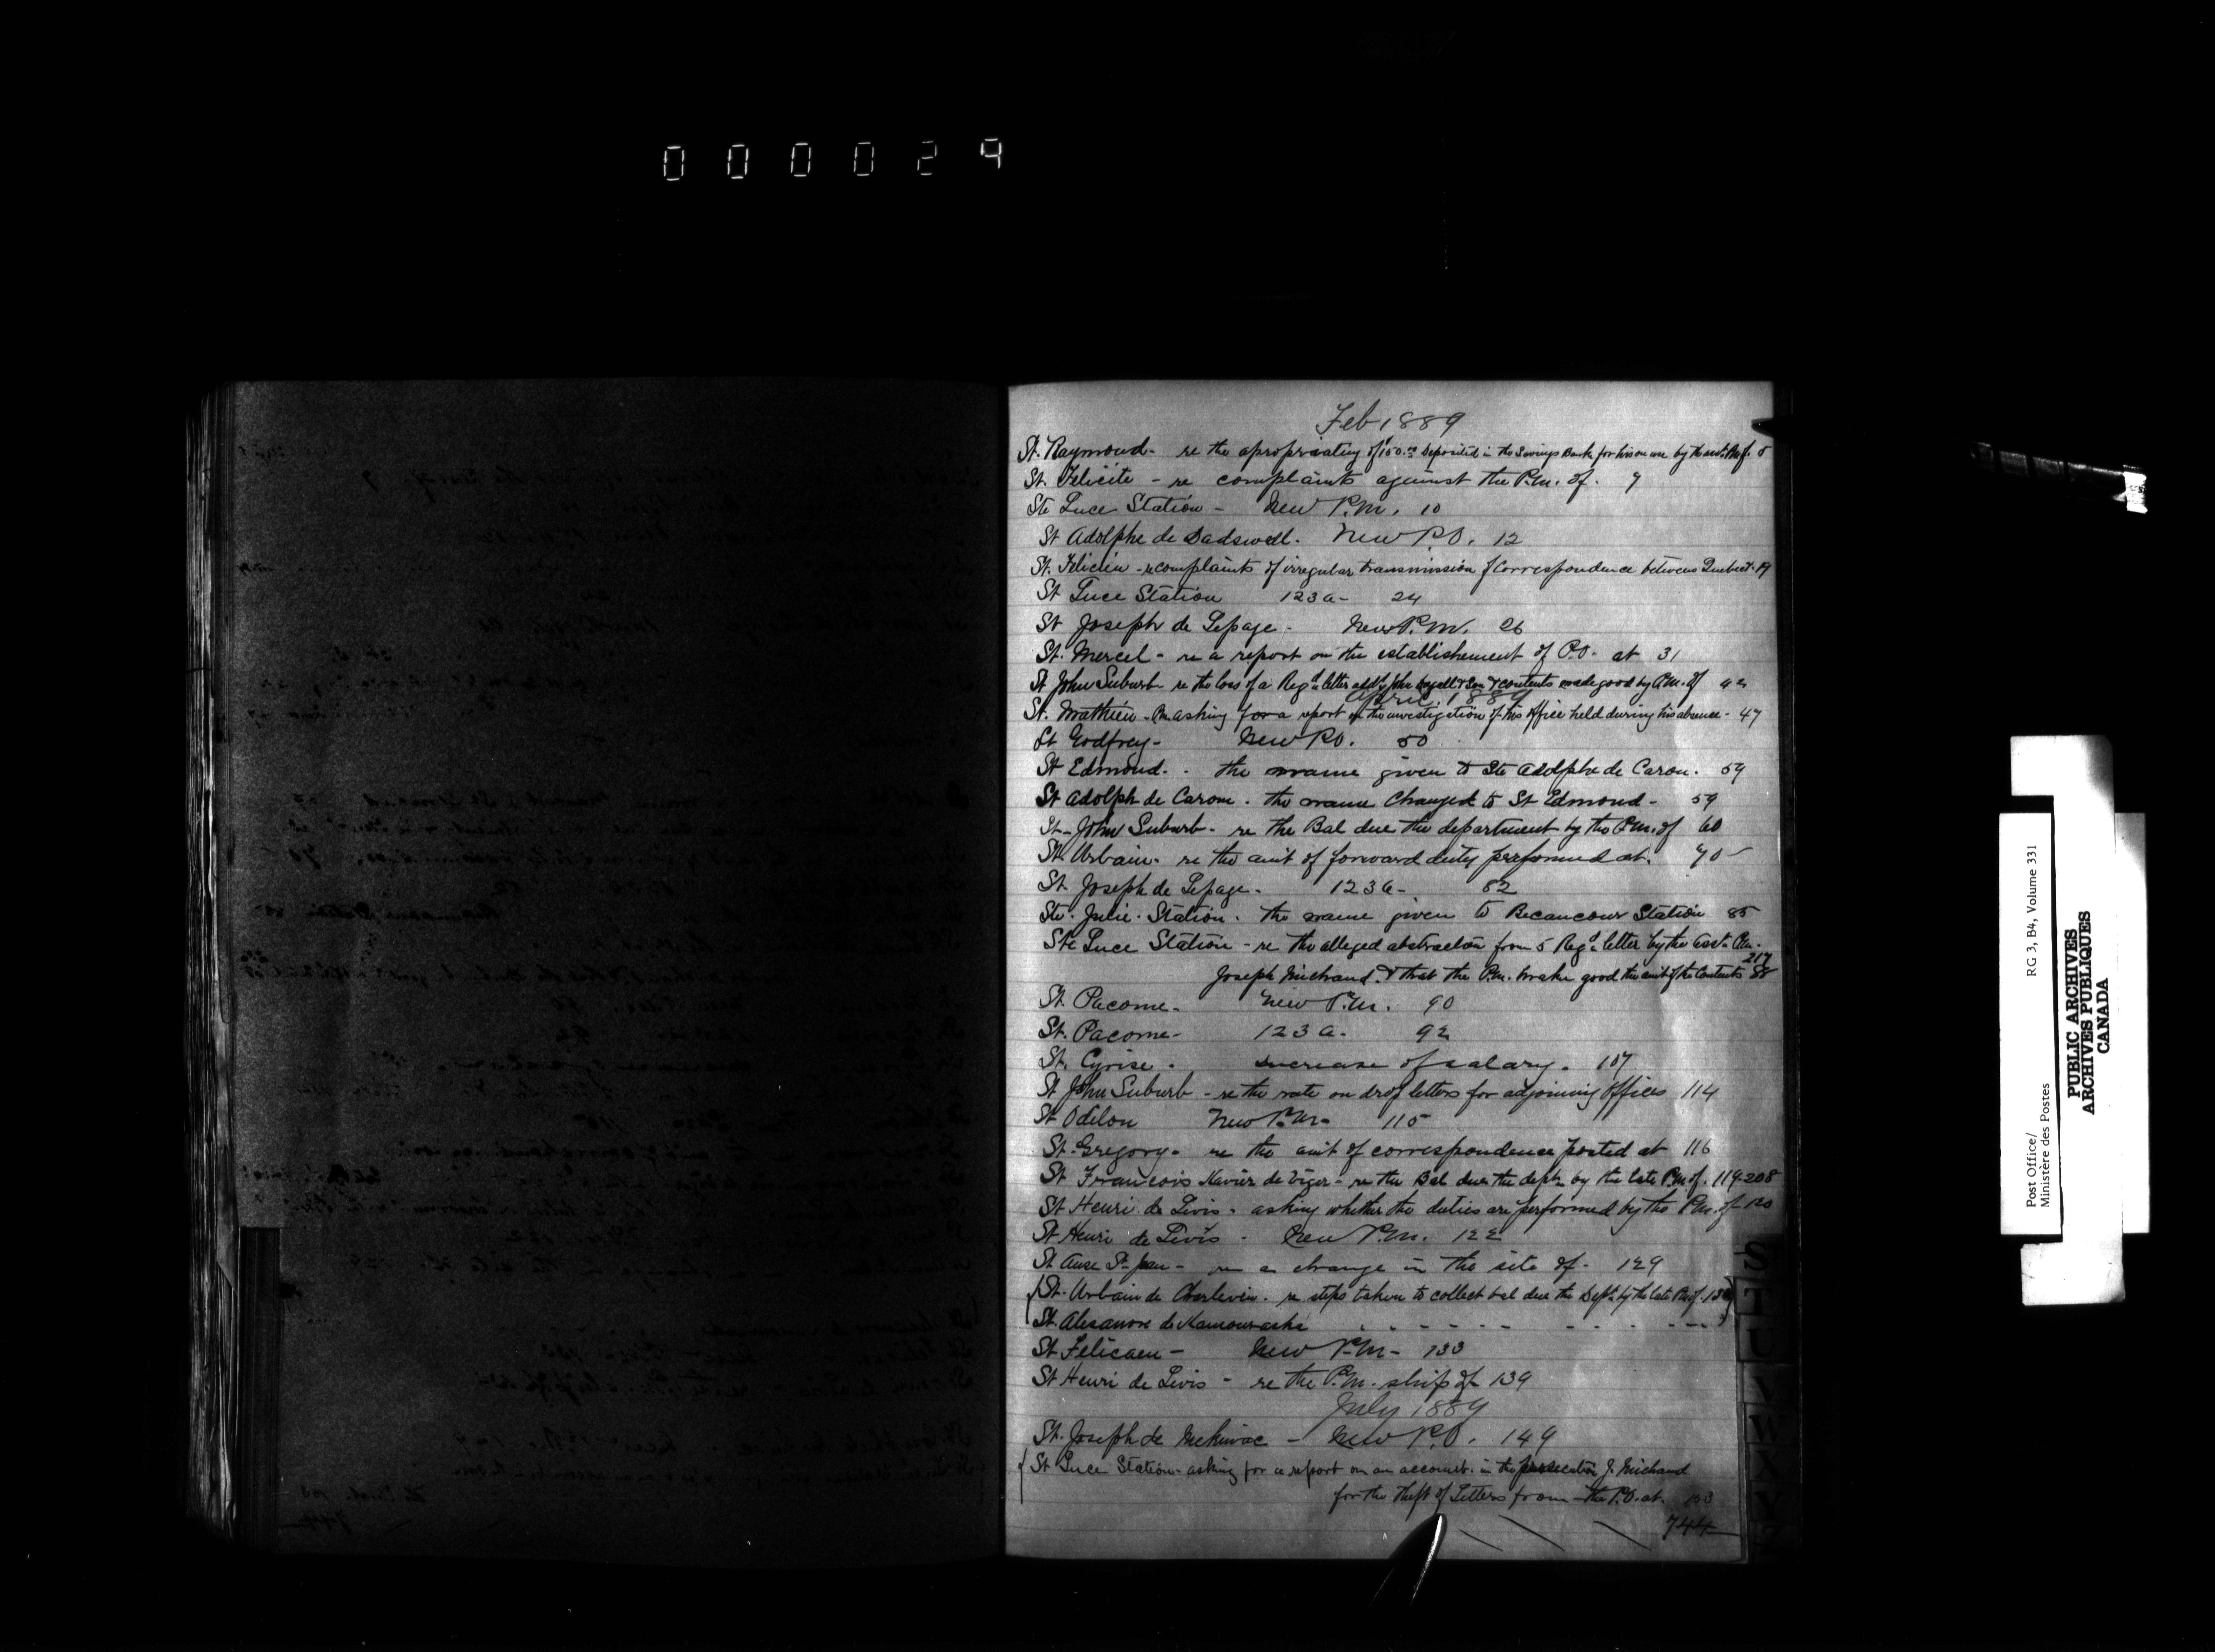 000029
Feb 1889
St. Raymond - re the apropriating of $100.00 deposited in the Savings Bank for his own use by the P.M. of. 5
St. Felicite - re complaints against the P.M. of. 9
Ste Luce Station - New P.M. 10
St Adolphe de Dadswell. New P.O. 12
St. Felicien - re complaints of irregular transmission of Correspondence between Quebec & 19
St Luce Station 123a - 24
St Joseph de Lepage - New P.M. 26
St. Mercel - re a report on the establishement of P.O. at 31
St John Suburb - re the loss of a Regd letter addd John & Son & contents made good by P.M. of 42
April 1889
St. Mathieu - P.M. asking for a report of the investigation of his office held during his absence - 47
St Godfrey - New P.O. 50
St Edmond. - the name given to Ste Adolphe de Caron. 59
St Adolph de Carom. the name Changed to St Edmond - 59
St - John Suburb - re the Bal due the department by the P.M. of 60
St. Urbain. re the amt of forward duty performed at. 70
St Joseph de Lepage. 123a - 82
Ste. Julie. Station. the name given to Becancour Station 85
Ste Luce Station - re the alleged abstraction from 5 Regd letter by the Asst. P.M.
Joseph Michaud & that the P.M. make good the amt of the Contents 88 217
St. Pacome - New P.M. 90
St. Pacome - 123a - 92
St. Cyrise. increase of salary. 107
St John Suburb - re the rate on drop letters for adjoining offices 114
St Odilon New P.M. 115
St. Gregory - re the amt of correspondence posted at 116
St Francois Xavier de Viger - re the Bal due the dept. by the late P.M. of. 119-208
St Henri de Livis - asking whether the duties are performed by the P.M. of 120
St Henri de Livis - New P.M. 122
St Anse St. Jean - re a change in the site of - 129
St. Urbain de Charlevoix. re steps taken to collect bal due the Dept. by the late P.M. of.
St. Alexanore de Kamouraska . . - - - - - . . . - - -
St Felicaen - New P.M - 133
St Henri de Livis - re the P.M. ship of 139
July 1889
St. Joseph de Mekinac - New P.O. 149
St Luce Station - asking for a report on an account. in the prosecution J. Michaud
for the theft of Letters from the P.O. at 153
744
S
T
U
V
W
X
Y
Z
Post Office/
Ministère des Postes
RG 3, B4, Volume 331
PUBLIC ARCHIVES
ARCHIVES PUBLIQUES
CANADA